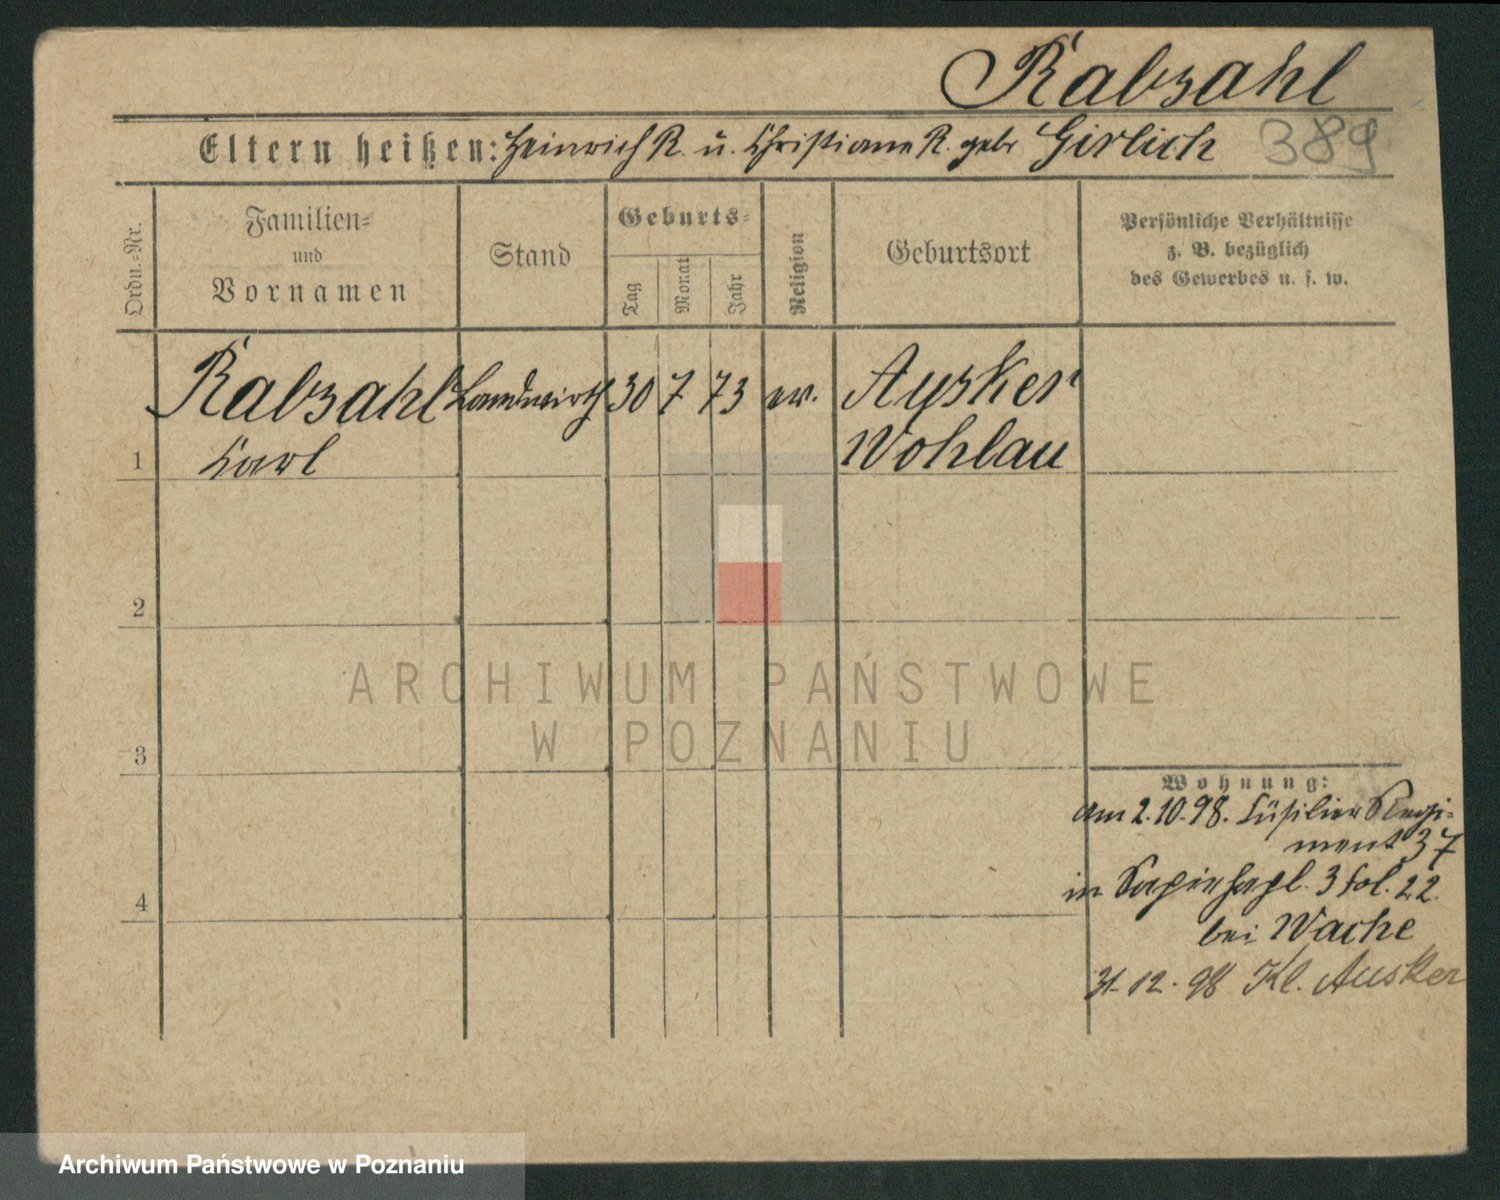 Rabsahl
Eltern heißen: Heinrich R. u. Christiane R. gebr Girlich 389
Ordn.-Nr.
Familien-
und
Vornamen
Stand
Geburts-
Tag
Monat
Jahr
Religion
Geburtsort
Persönliche Verhältnisse
z. B. bezüglich
des Gewerbes u. s. w.
Rabsahl Landwirth 30 7 73 ev. Aysker
1 Carl Wohlau
2
ARCHIWUM PAŃSTWOWE
W POZNANIU
3
Wohnung:
am 2.10.98. Füsilier Regi-
ment 37
in 3 22.
4
bei Wache
31.12.98 Kl. Ausker
Archiwum Państwowe w Poznaniu